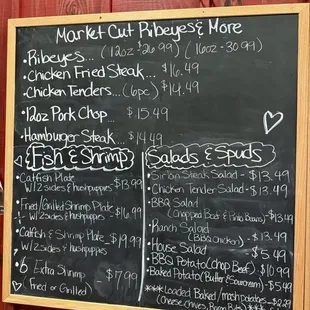 Market Cut Ribeyes & More
• Ribeyes... (12oz $26.99) (16oz - 30.99)
• Chicken Fried Steak... $16.49
• Chicken Tenders... (6pc) $14.49
• 12oz Pork Chop... $15.49
• Hamburger Steak... $14.49
Fish & Shrimp
• Catfish Plate - $13.99
w/2 sides & hushpuppies
Fried/Grilled Shrimp Plate
w/2 sides & hushpuppies - $16.99
Catfish & Shrimp Plate - $19.99
w/2 sides & hushpuppies
• 6 Extra Shrimp - $7.99
(Fried or Grilled)
Salads & Spuds
• Sirloin Steak Salad - $13.49
• Chicken Tender Salad - $13.49
• BBQ Salad
(Chopped Beef & Pinto Beans) - $13.49
• Ranch Salad
(BBQ Chicken) - $13.49
• House Salad - $5.49
• BBS Potato (Chop Beef) $10.99
• Baked Potato (Butter & Sourcream) - $5.49
*** Loaded Baked / mash potatoes - $2.29
(Cheese, Chives, Bacon Bits)